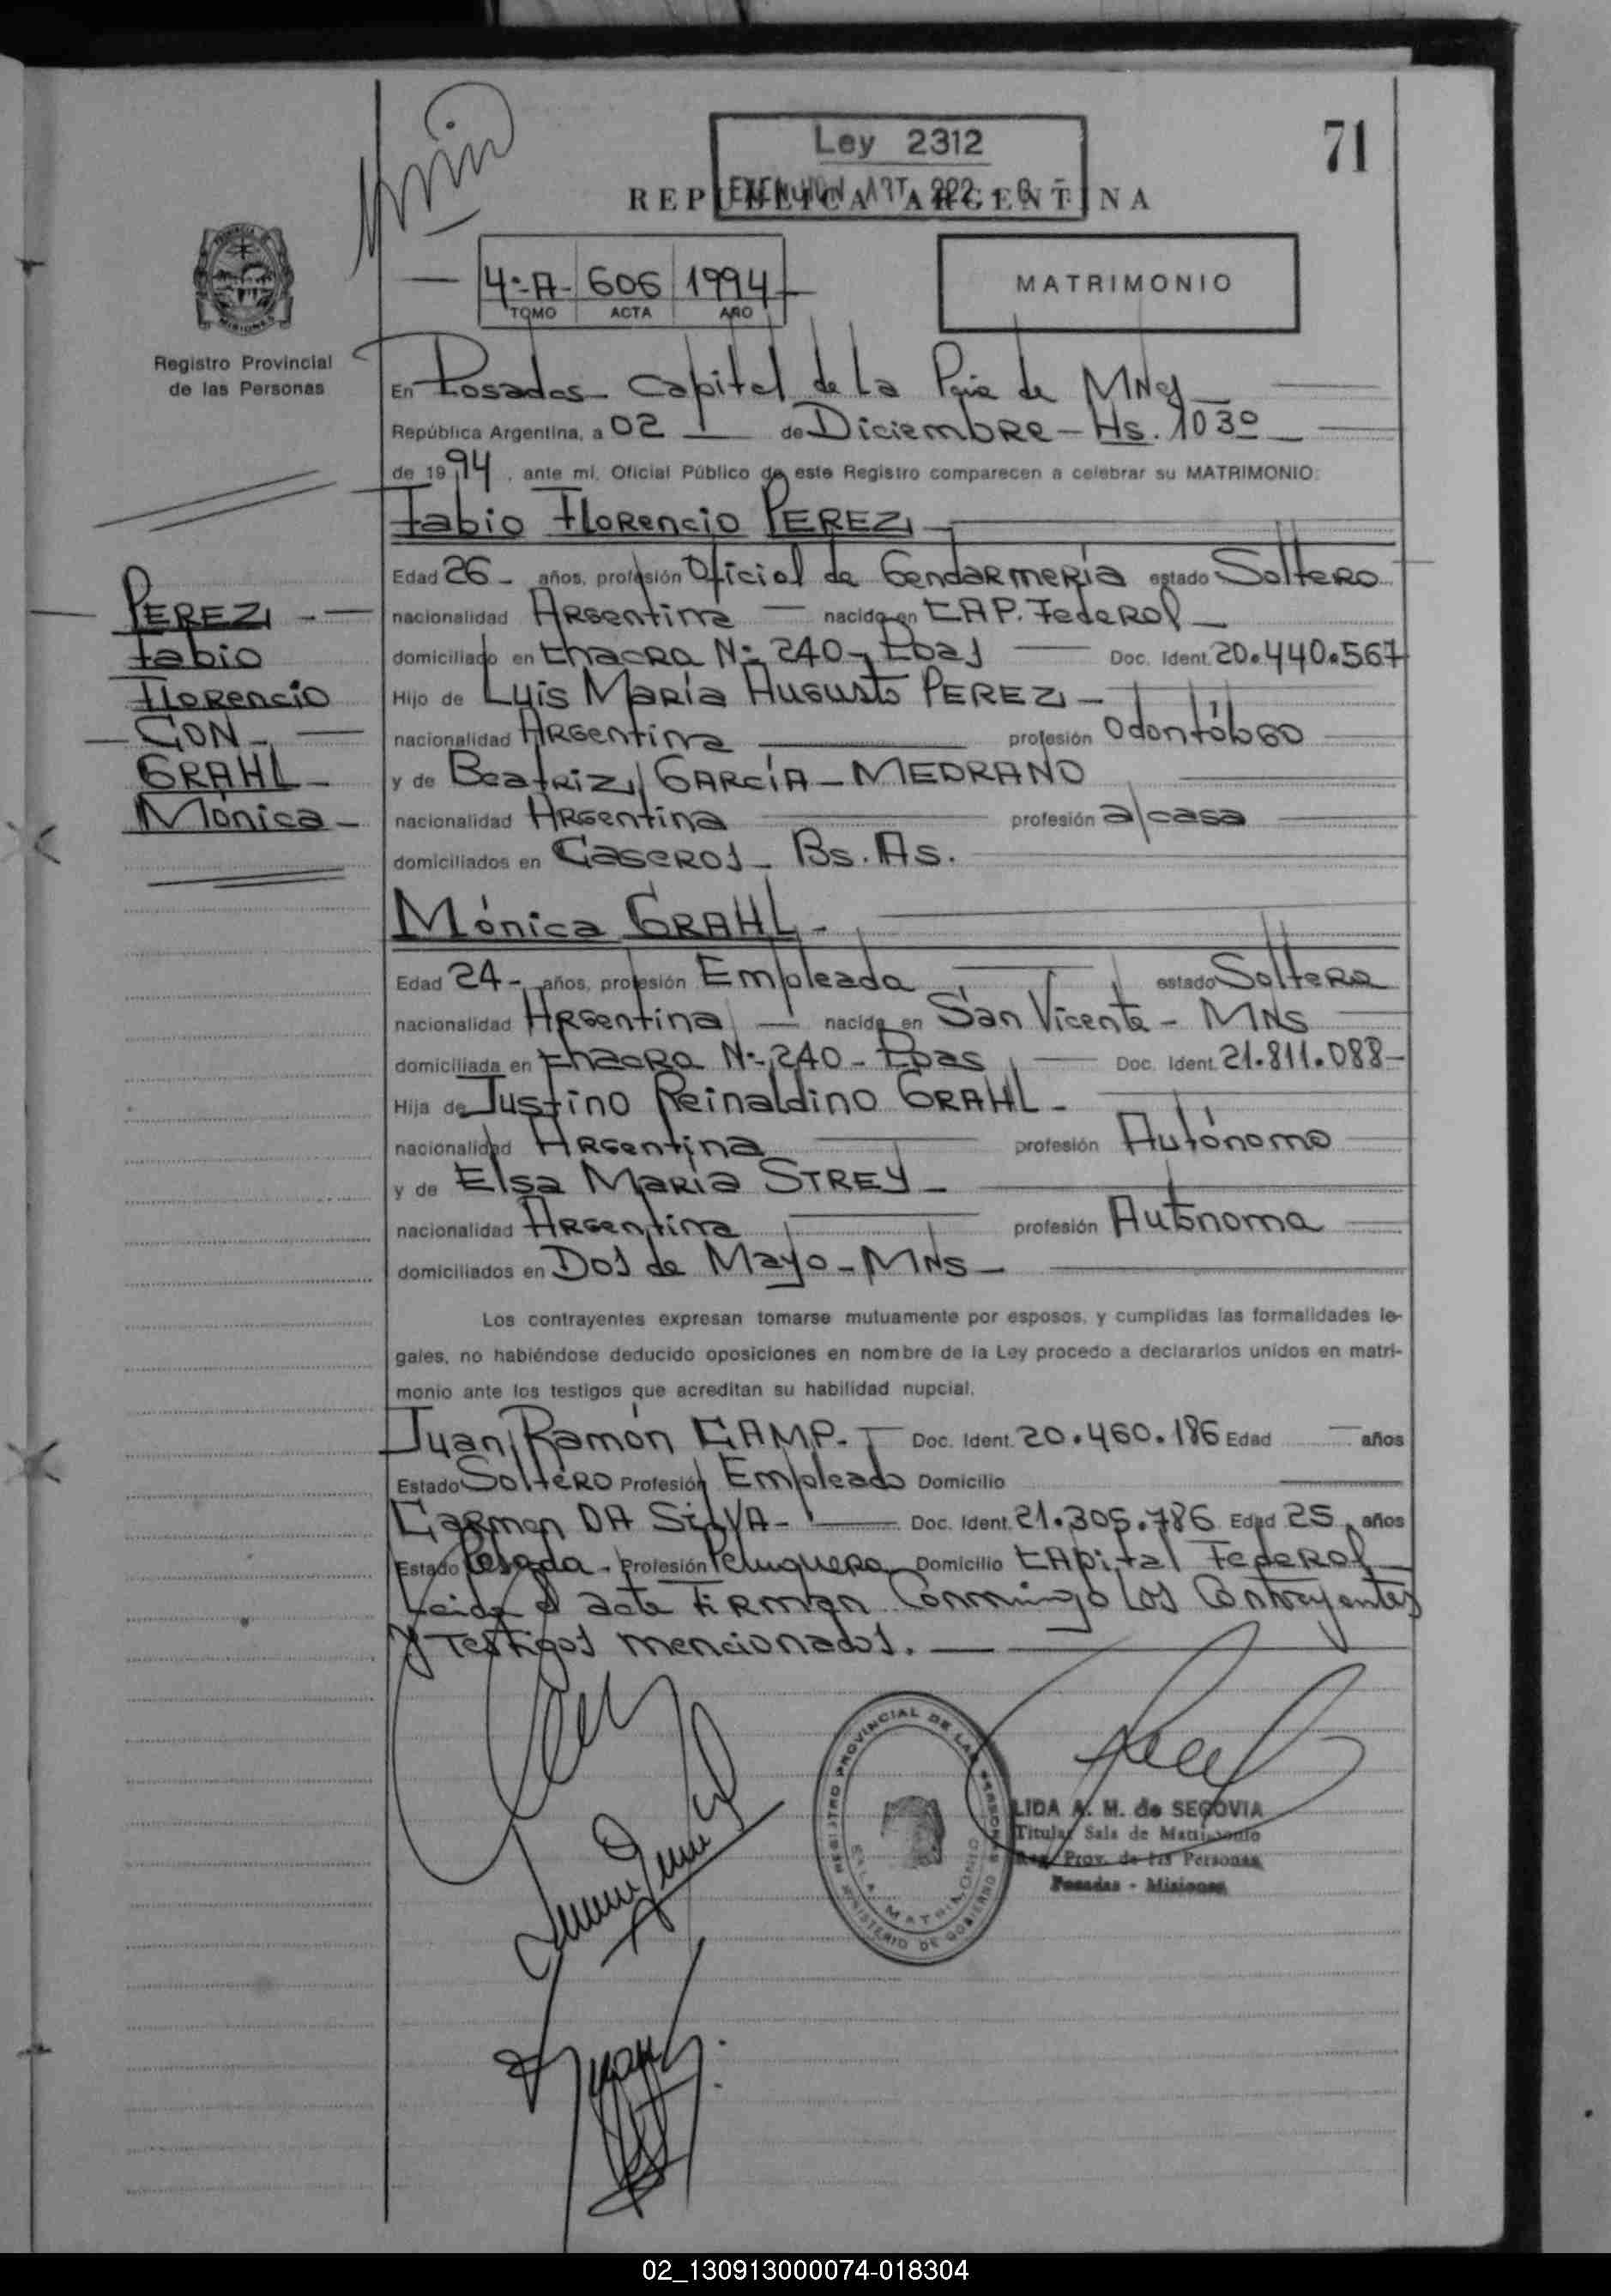 71
Ley 2312
REPUBLICA ARGENTINA
4º-A- 606 1994
TOMO ACTA AÑO
MATRIMONIO
PROVINCIA
MISIONES
Registro Provincial
de las Personas
En Posadas Capital de La Pcia de MNes
República Argentina, a 02 de Diciembre - Hs. 10 30
de 19 94, ante mí, Oficial Público de este Registro comparecen a celebrar su MATRIMONIO:
Fabio Florencio PEREZ
Edad 26 - años, profesión Oficial de Gendarmería estado Soltero
nacionalidad Argentina - nacido en CAP. Federal
domiciliado en Chacra Nº 240 - Pdas Doc. Ident. 20.440.567
Hijo de Luis María Augusto PEREZ -
nacionalidad Argentina profesión Odontólogo
y de Beatriz GARCÍA - MEDRANO
nacionalidad Argentina profesión a/casa
domiciliados en Caseros - Bs. As.
PEREZ -
Fabio
Florencio
CON -
GRAHL -
Mónica -
Mónica GRAHL -
Edad 24 - años, profesión Empleada estado Soltera
nacionalidad Argentina - nacida en San Vicente - MNS
domiciliada en Chacra Nº 240 - Pdas Doc. Ident. 21.811.088 -
Hija de Justino Reinaldino GRAHL -
nacionalidad Argentina profesión Autónomo
y de Elsa María STREY -
nacionalidad Argentina profesión Autónoma
domiciliados en Dos de Mayo - MNS -
Los contrayentes expresan tomarse mutuamente por esposos, y cumplidas las formalidades le-
gales, no habiéndose deducido oposiciones en nombre de la Ley procedo a declararlos unidos en matri-
monio ante los testigos que acreditan su habilidad nupcial.
Juan Ramón CAMP. - Doc. Ident. 20.460.186 Edad - años
Estado Soltero Profesión Empleado Domicilio
Carmen DA SILVA - Doc. Ident. 21.305.786 Edad 25 años
Estado Casada - Profesión Peluquera Domicilio CApital Federal
Leida el acta Firman Conmingo Los Contrayentes
y Testigos mencionados.
REGISTRO PROVINCIAL DE LAS PERSONAS
SALA MATRIMONIO
MINISTERIO DE GOBIERNO
LIDA A. M. de SEGOVIA
Titular Sala de Matrimonio
Reg. Prov. de las Personas
Posadas - Misiones
02_130913000074-018304